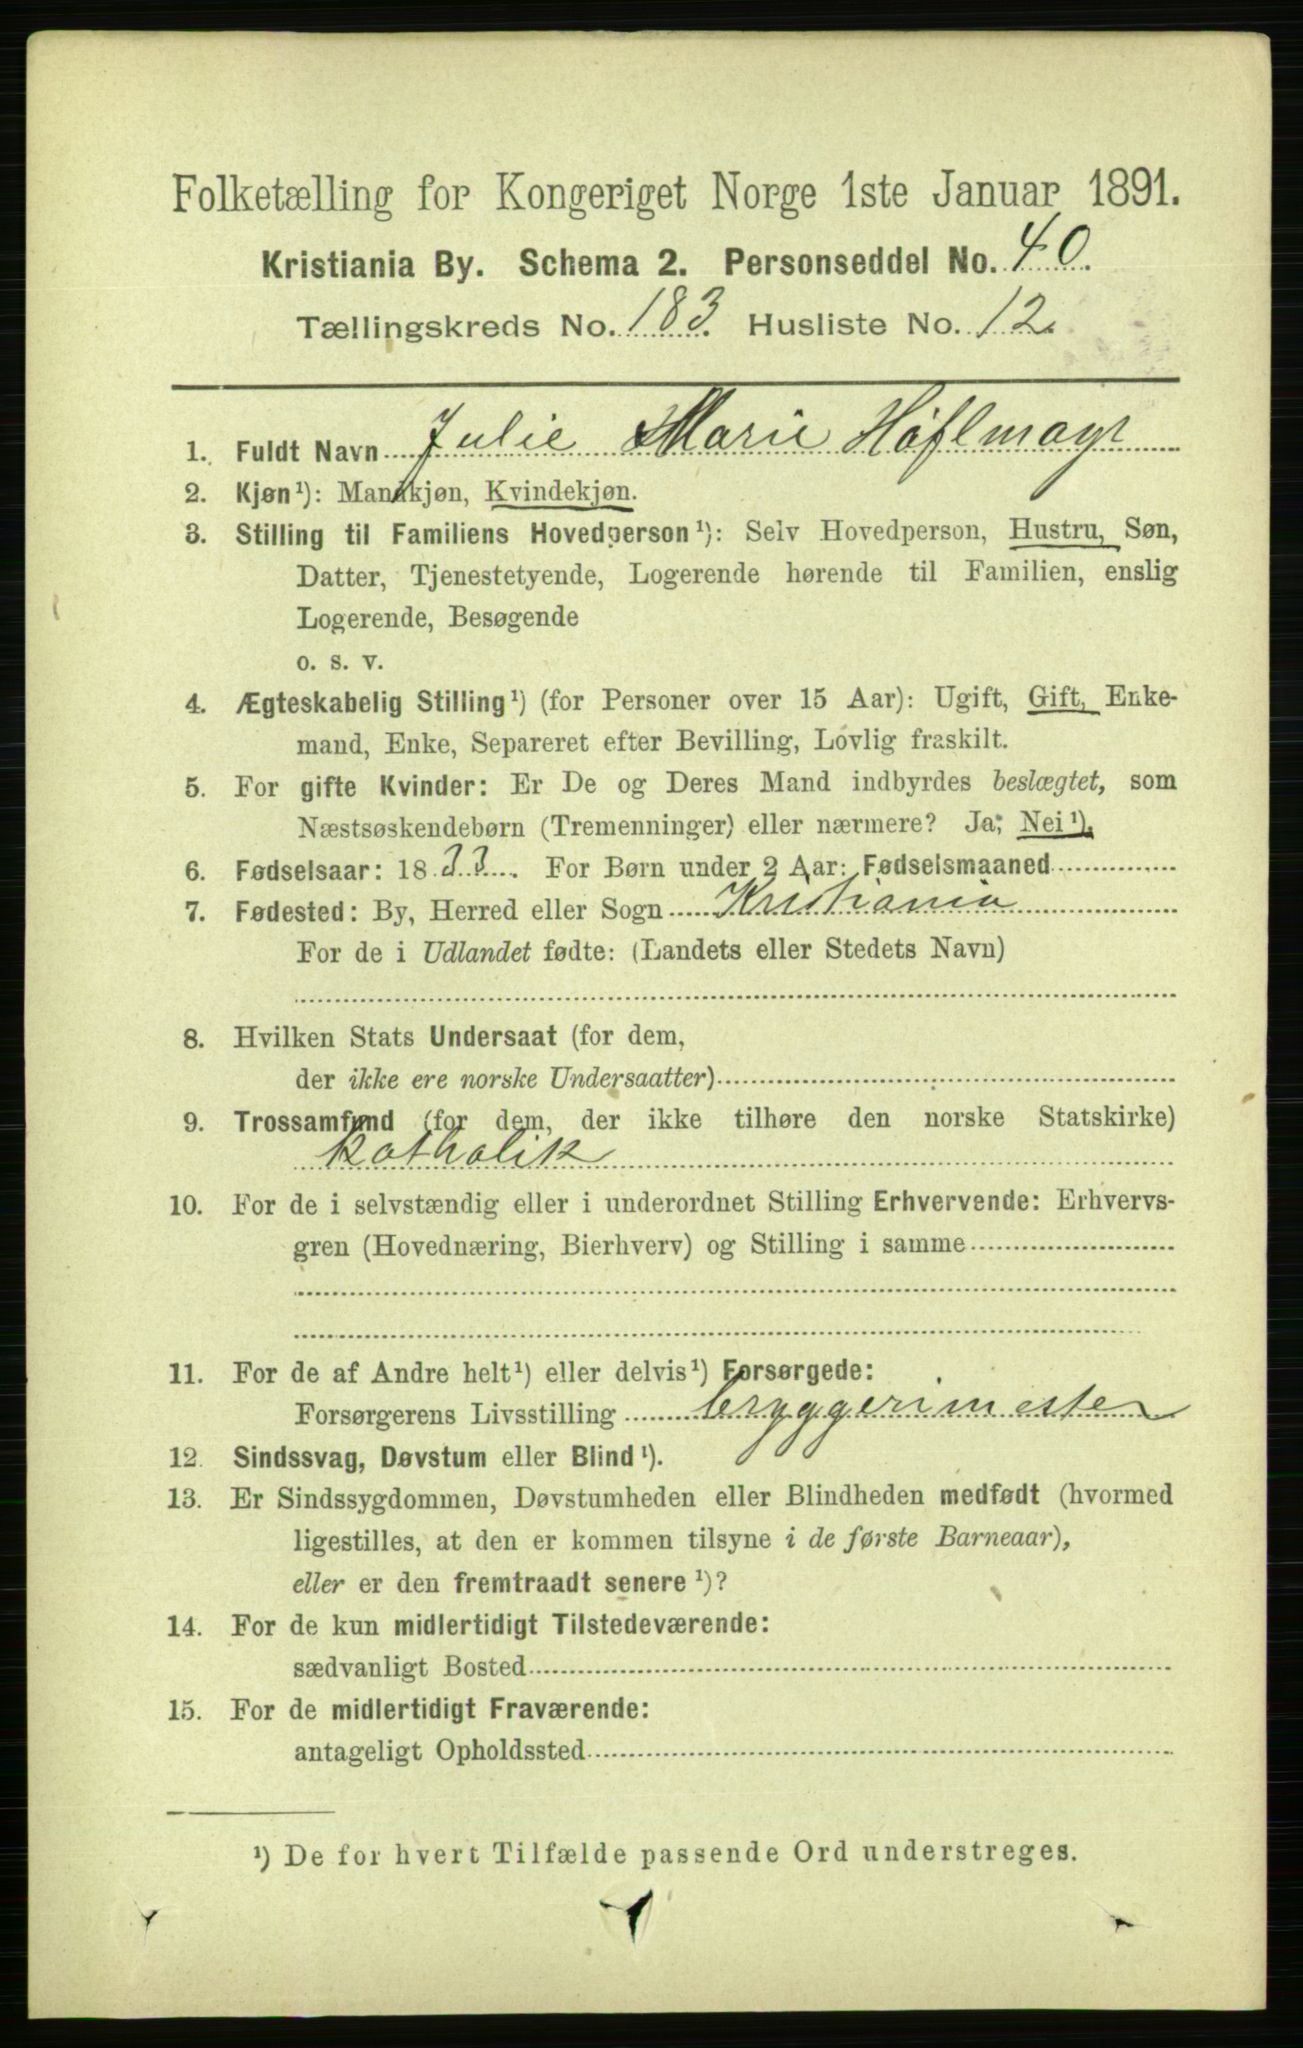 Folketælling for Kongeriget Norge 1ste Januar 1891.
Kristiania By. Schema 2. Personseddel No. 40.
Tællingskreds No. 183. Husliste No. 12.
1. Fuldt Navn Julie Marie Høflmayr
2. Kjøn¹): Mandkjøn, Kvindekjøn.
3. Stilling til Familiens Hovedperson¹): Selv Hovedperson, Hustru, Søn,
Datter, Tjenestetyende, Logerende hørende til Familien, enslig
Logerende, Besøgende
o. s. v.
4. Ægteskabelig Stilling¹) (for Personer over 15 Aar): Ugift, Gift, Enke-
mand, Enke, Separeret efter Bevilling, Lovlig fraskilt.
5. For gifte Kvinder: Er De og Deres Mand indbyrdes beslægtet, som
Næstsøskendebørn (Tremenninger) eller nærmere? Ja, Nei¹).
6. Fødselsaar: 1833. For Børn under 2 Aar: Fødselsmaaned
7. Fødested: By, Herred eller Sogn Kristiania
For de i Udlandet fødte: (Landets eller Stedets Navn)
8. Hvilken Stats Undersaat (for dem,
der ikke ere norske Undersaatter)
9. Trossamfund (for dem, der ikke tilhøre den norske Statskirke)
Katholik
10. For de i selvstændig eller i underordnet Stilling Erhvervende: Erhvervs-
gren (Hovednæring, Bierhverv) og Stilling i samme
11. For de af Andre helt¹) eller delvis¹) Forsørgede:
Forsørgerens Livsstilling bryggerimester
12. Sindssvag, Døvstum eller Blind¹).
13. Er Sindssygdommen, Døvstumheden eller Blindheden medfødt (hvormed
ligestilles, at den er kommen tilsyne i de første Barneaar),
eller er den fremtraadt senere¹)?
14. For de kun midlertidigt Tilstedeværende:
sædvanligt Bosted
15. For de midlertidigt Fraværende:
antageligt Opholdssted
¹) De for hvert Tilfælde passende Ord understreges.